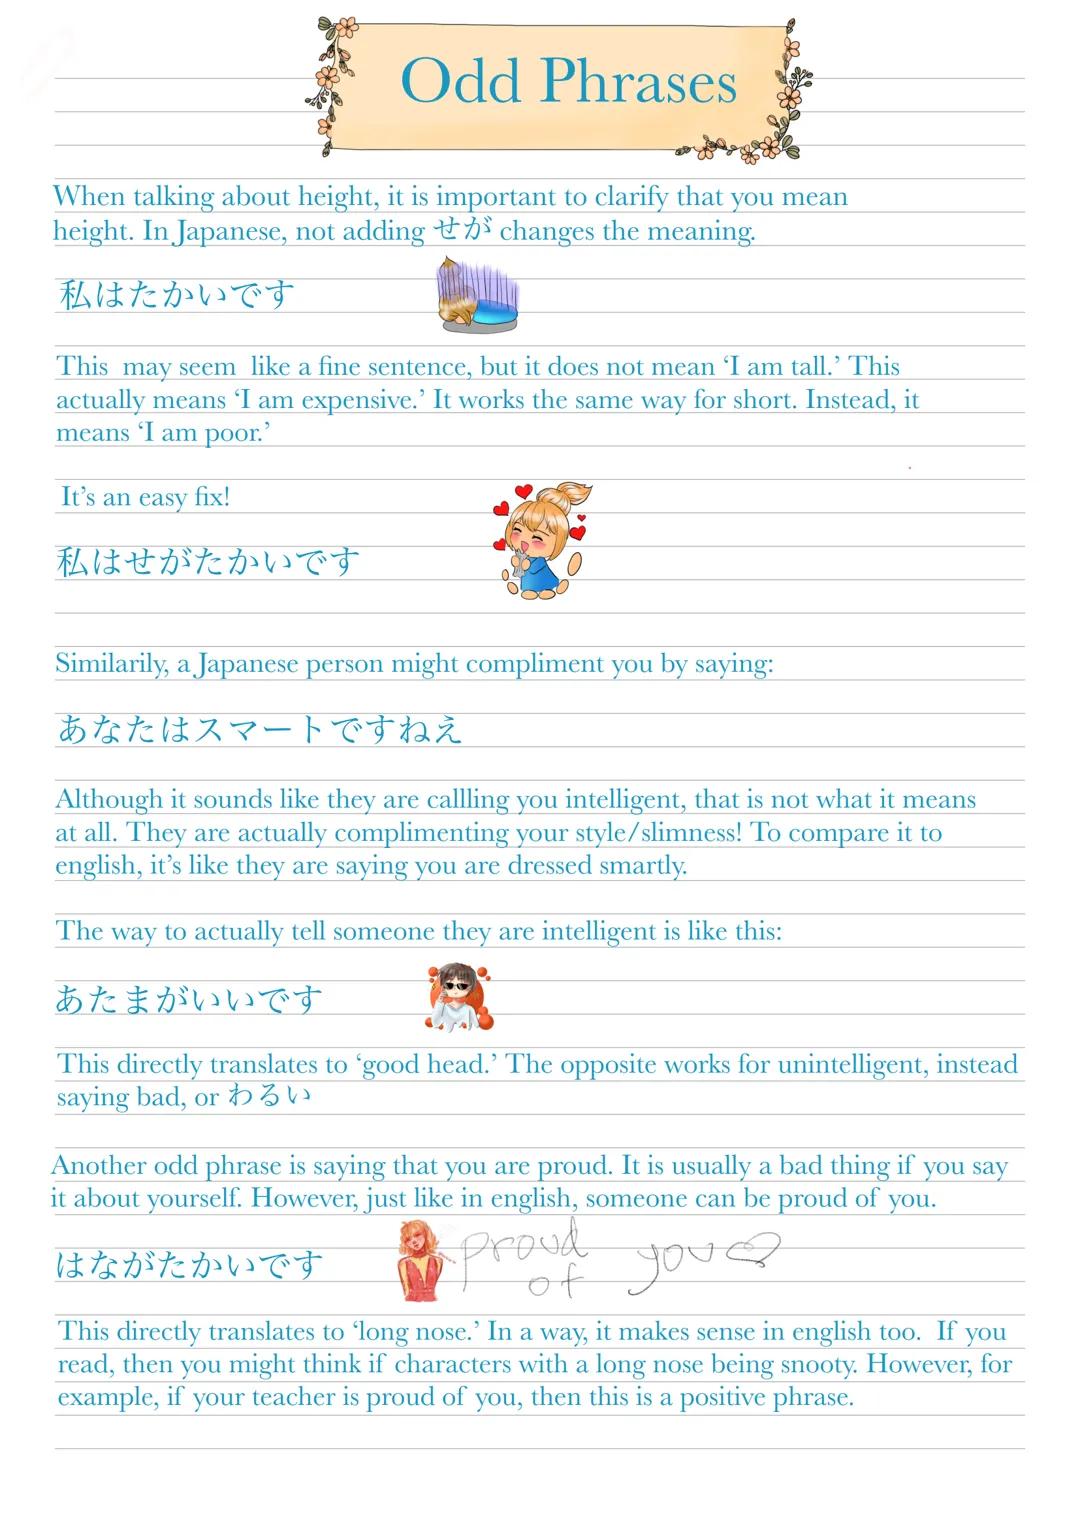 Odd Phrases
When talking about height, it is important to clarify that you mean
height. In Japanese, not adding せが changes the meaning.
私はたかいです
This may seem like a fine sentence, but it does not mean ‘I am tall.’ This
actually means ‘I am expensive.’ It works the same way for short. Instead, it
means ‘I am poor.’
It’s an easy fix!
私はせがたかいです
Similarily, a Japanese person might compliment you by saying:
あなたはスマートですねえ
Although it sounds like they are callling you intelligent, that is not what it means
at all. They are actually complimenting your style/slimness! To compare it to
english, it’s like they are saying you are dressed smartly.
The way to actually tell someone they are intelligent is like this:
あたまがいいです
This directly translates to ‘good head.’ The opposite works for unintelligent, instead
saying bad, or わるい
Another odd phrase is saying that you are proud. It is usually a bad thing if you say
it about yourself. However, just like in english, someone can be proud of you.
はながたかいです
proud of you
This directly translates to ‘long nose.’ In a way, it makes sense in english too. If you
read, then you might think if characters with a long nose being snooty. However, for
example, if your teacher is proud of you, then this is a positive phrase.